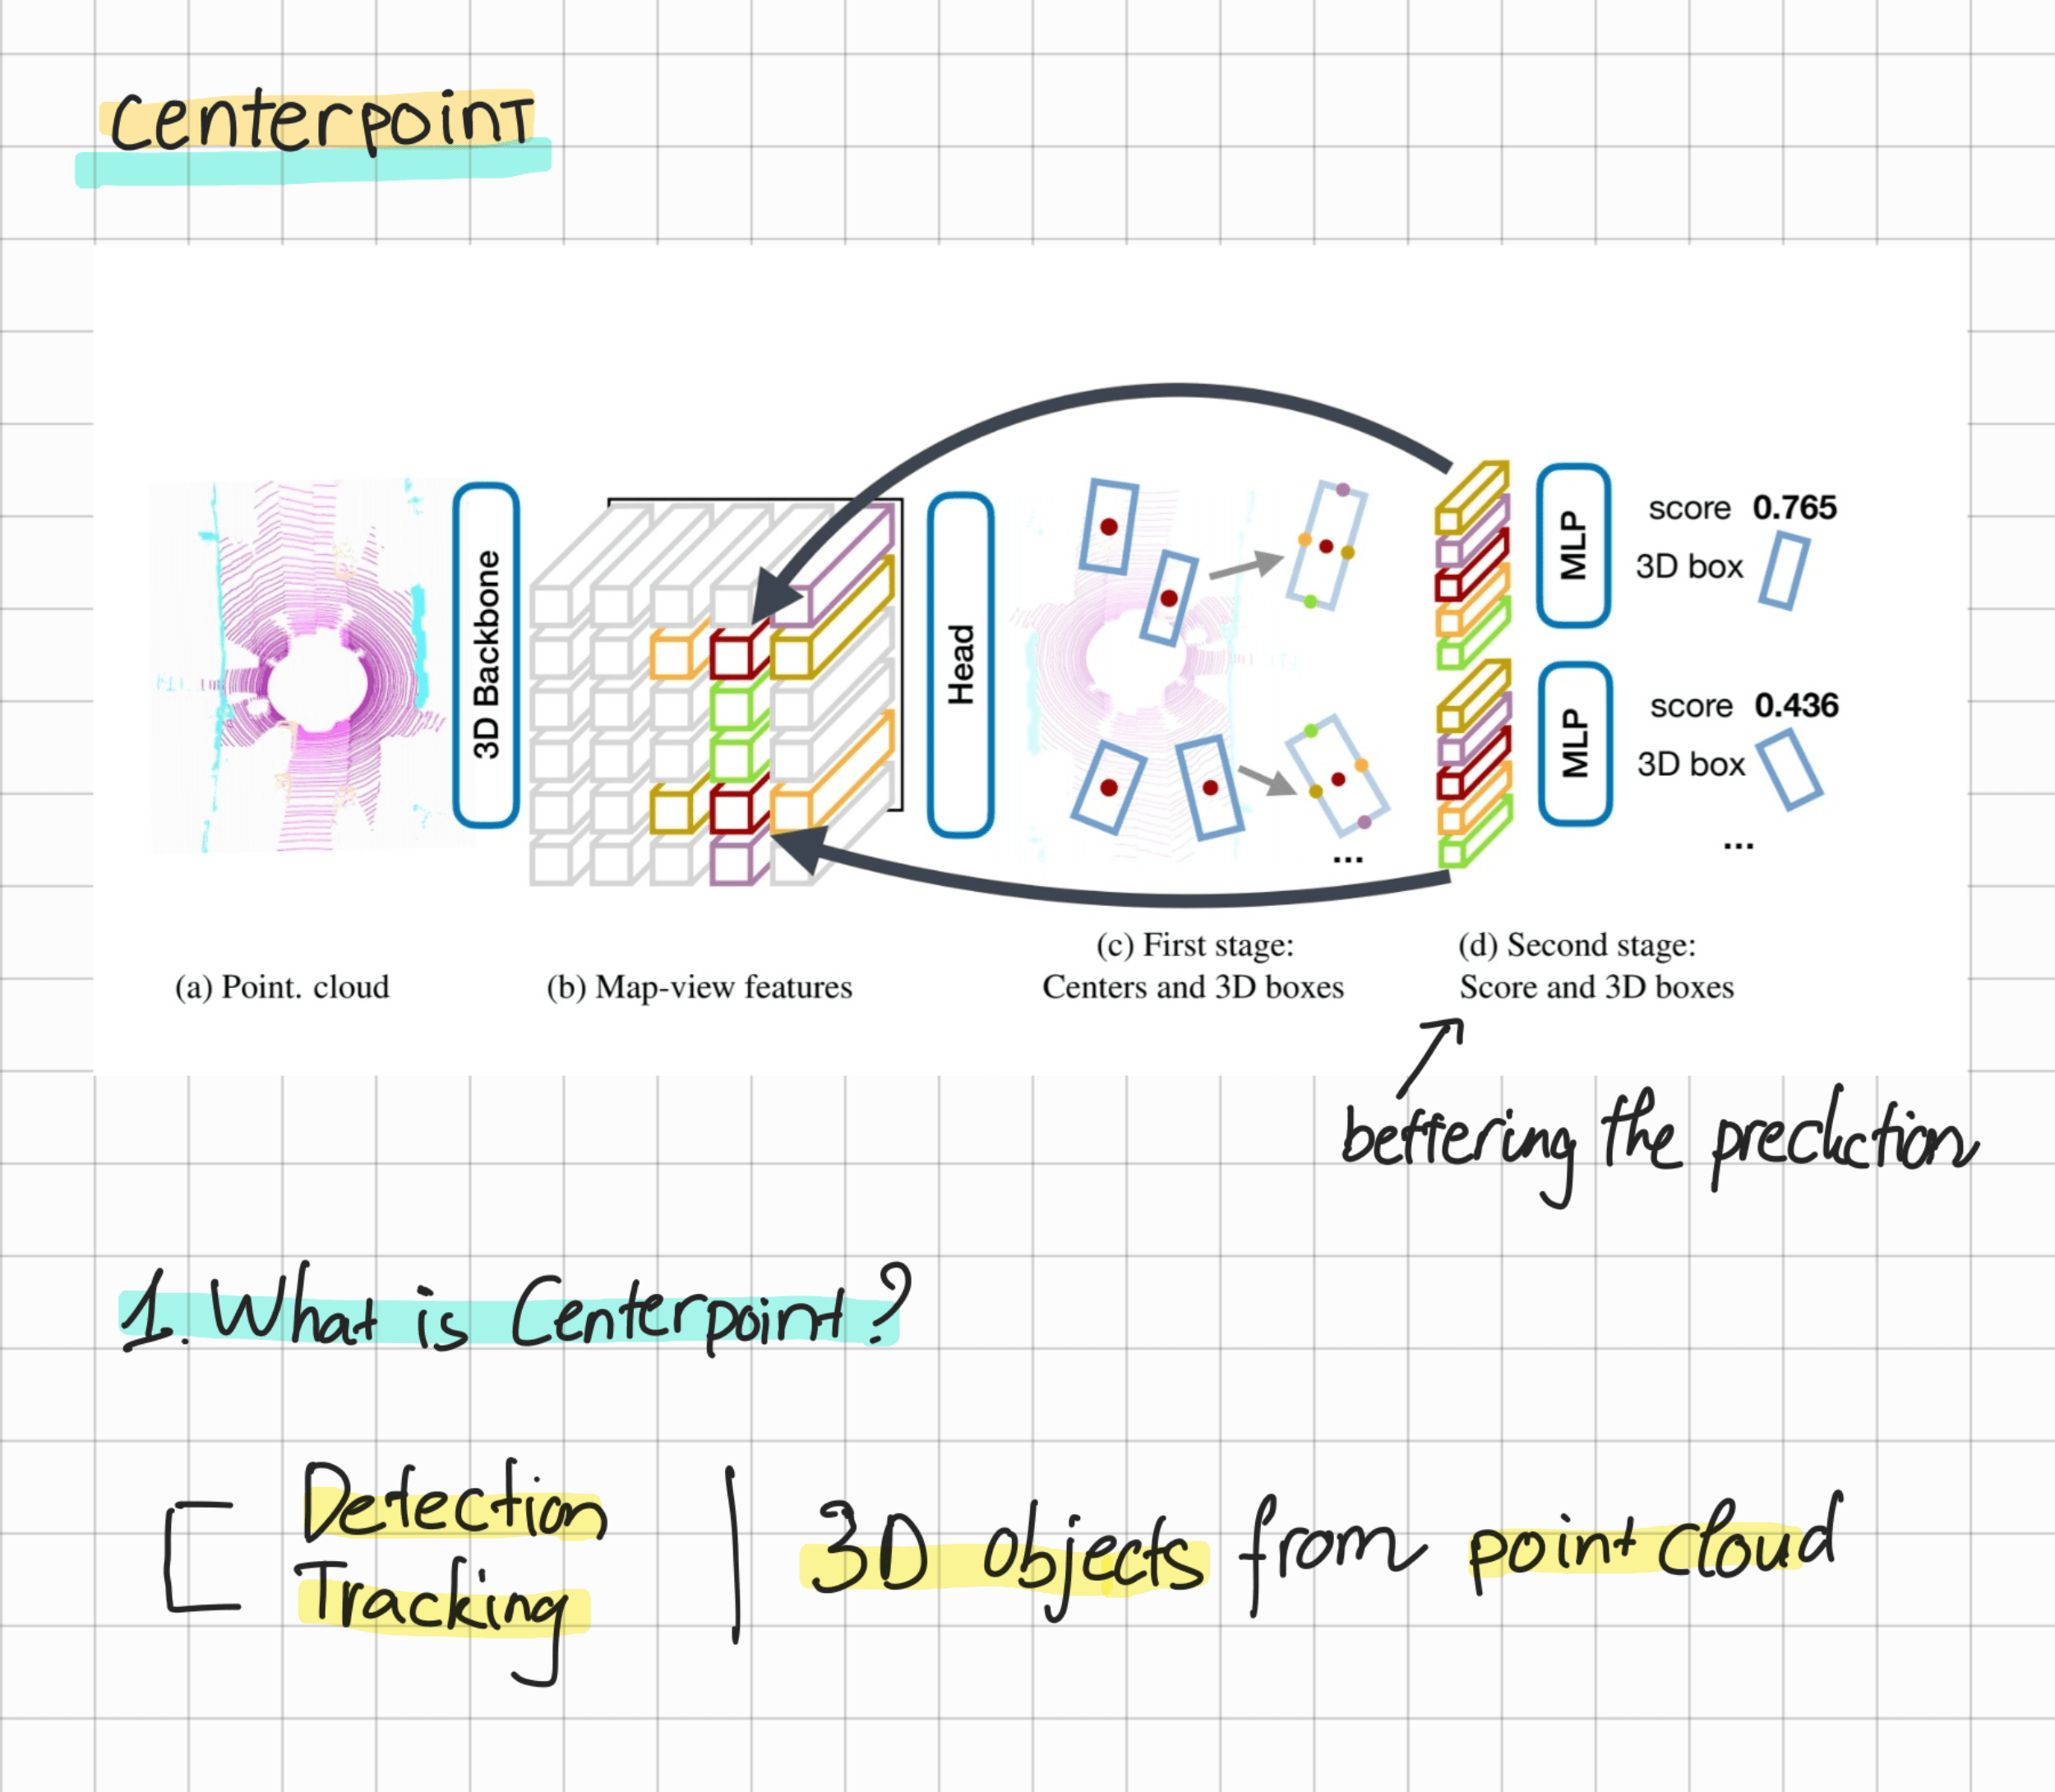 Centerpoint
3D Backbone
Head
MLP
score 0.765
3D box
MLP
score 0.436
3D box
...
...
(a) Point. cloud
(b) Map-view features
(c) First stage:
Centers and 3D boxes
(d) Second stage:
Score and 3D boxes
bettering the prediction
1. What is Centerpoint?
Detection
Tracking
3D objects from point cloud